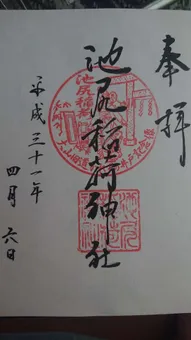 奉拝
池尻稲荷神社
平成三十一年
四月六日
池尻稲荷